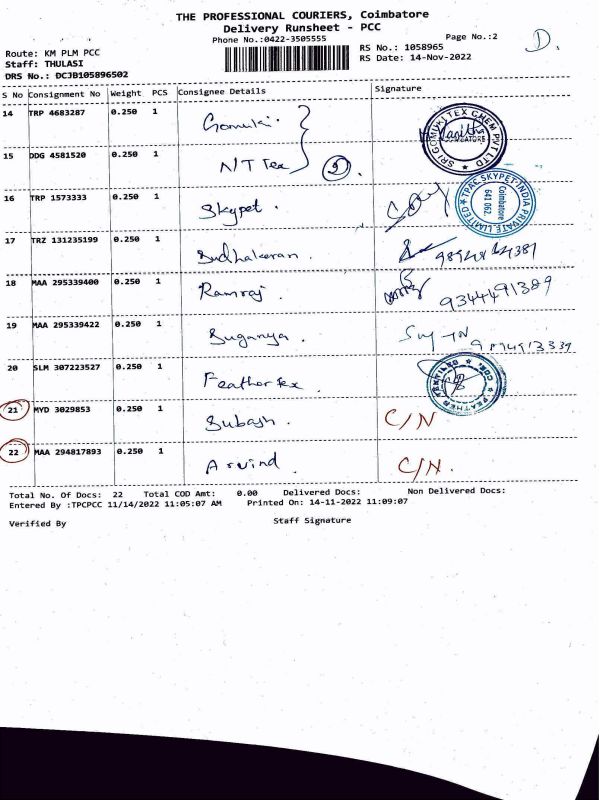 THE PROFESSIONAL COURIERS, Coimbatore
Delivery Runsheet - PCC
Phone No.:0422-3505555
Page No.:2
D.
Route: KM PLM PCC
RS No.: 1058965
Staff: THULASI
RS Date: 14-Nov-2022
DRS No.: DCJB105896502
S No Consignment No Weight PCS Consignee Details Signature
14 TRP 4683287 0.250 1 Gomuki.
SRI GOMUKI TEX CHEM PVT LTD
COIMBATORE
15 DDG 4581520 0.250 1 NT Tex 2.
16 TRP 1573333 0.250 1 Skypet.
TPAC SKYPET INDIA PRIVATE LIMITED
Coimbatore
641 062.
17 TRZ 131235199 0.250 1 Sudhakaran.
18 MAA 295339400 0.250 1 Ramraj. 9344491389
19 MAA 295339422 0.250 1 Suganya.
20 SLM 307223527 0.250 1 Feather tex.
21 MYD 3029853 0.250 1 Subash. C/N
22 MAA 294817893 0.250 1 Arvind C/N.
Total No. Of Docs: 22 Total COD Amt: 0.00 Delivered Docs: Non Delivered Docs:
Entered By :TPCPCC 11/14/2022 11:05:07 AM Printed On: 14-11-2022 11:09:07
Verified By Staff Signature